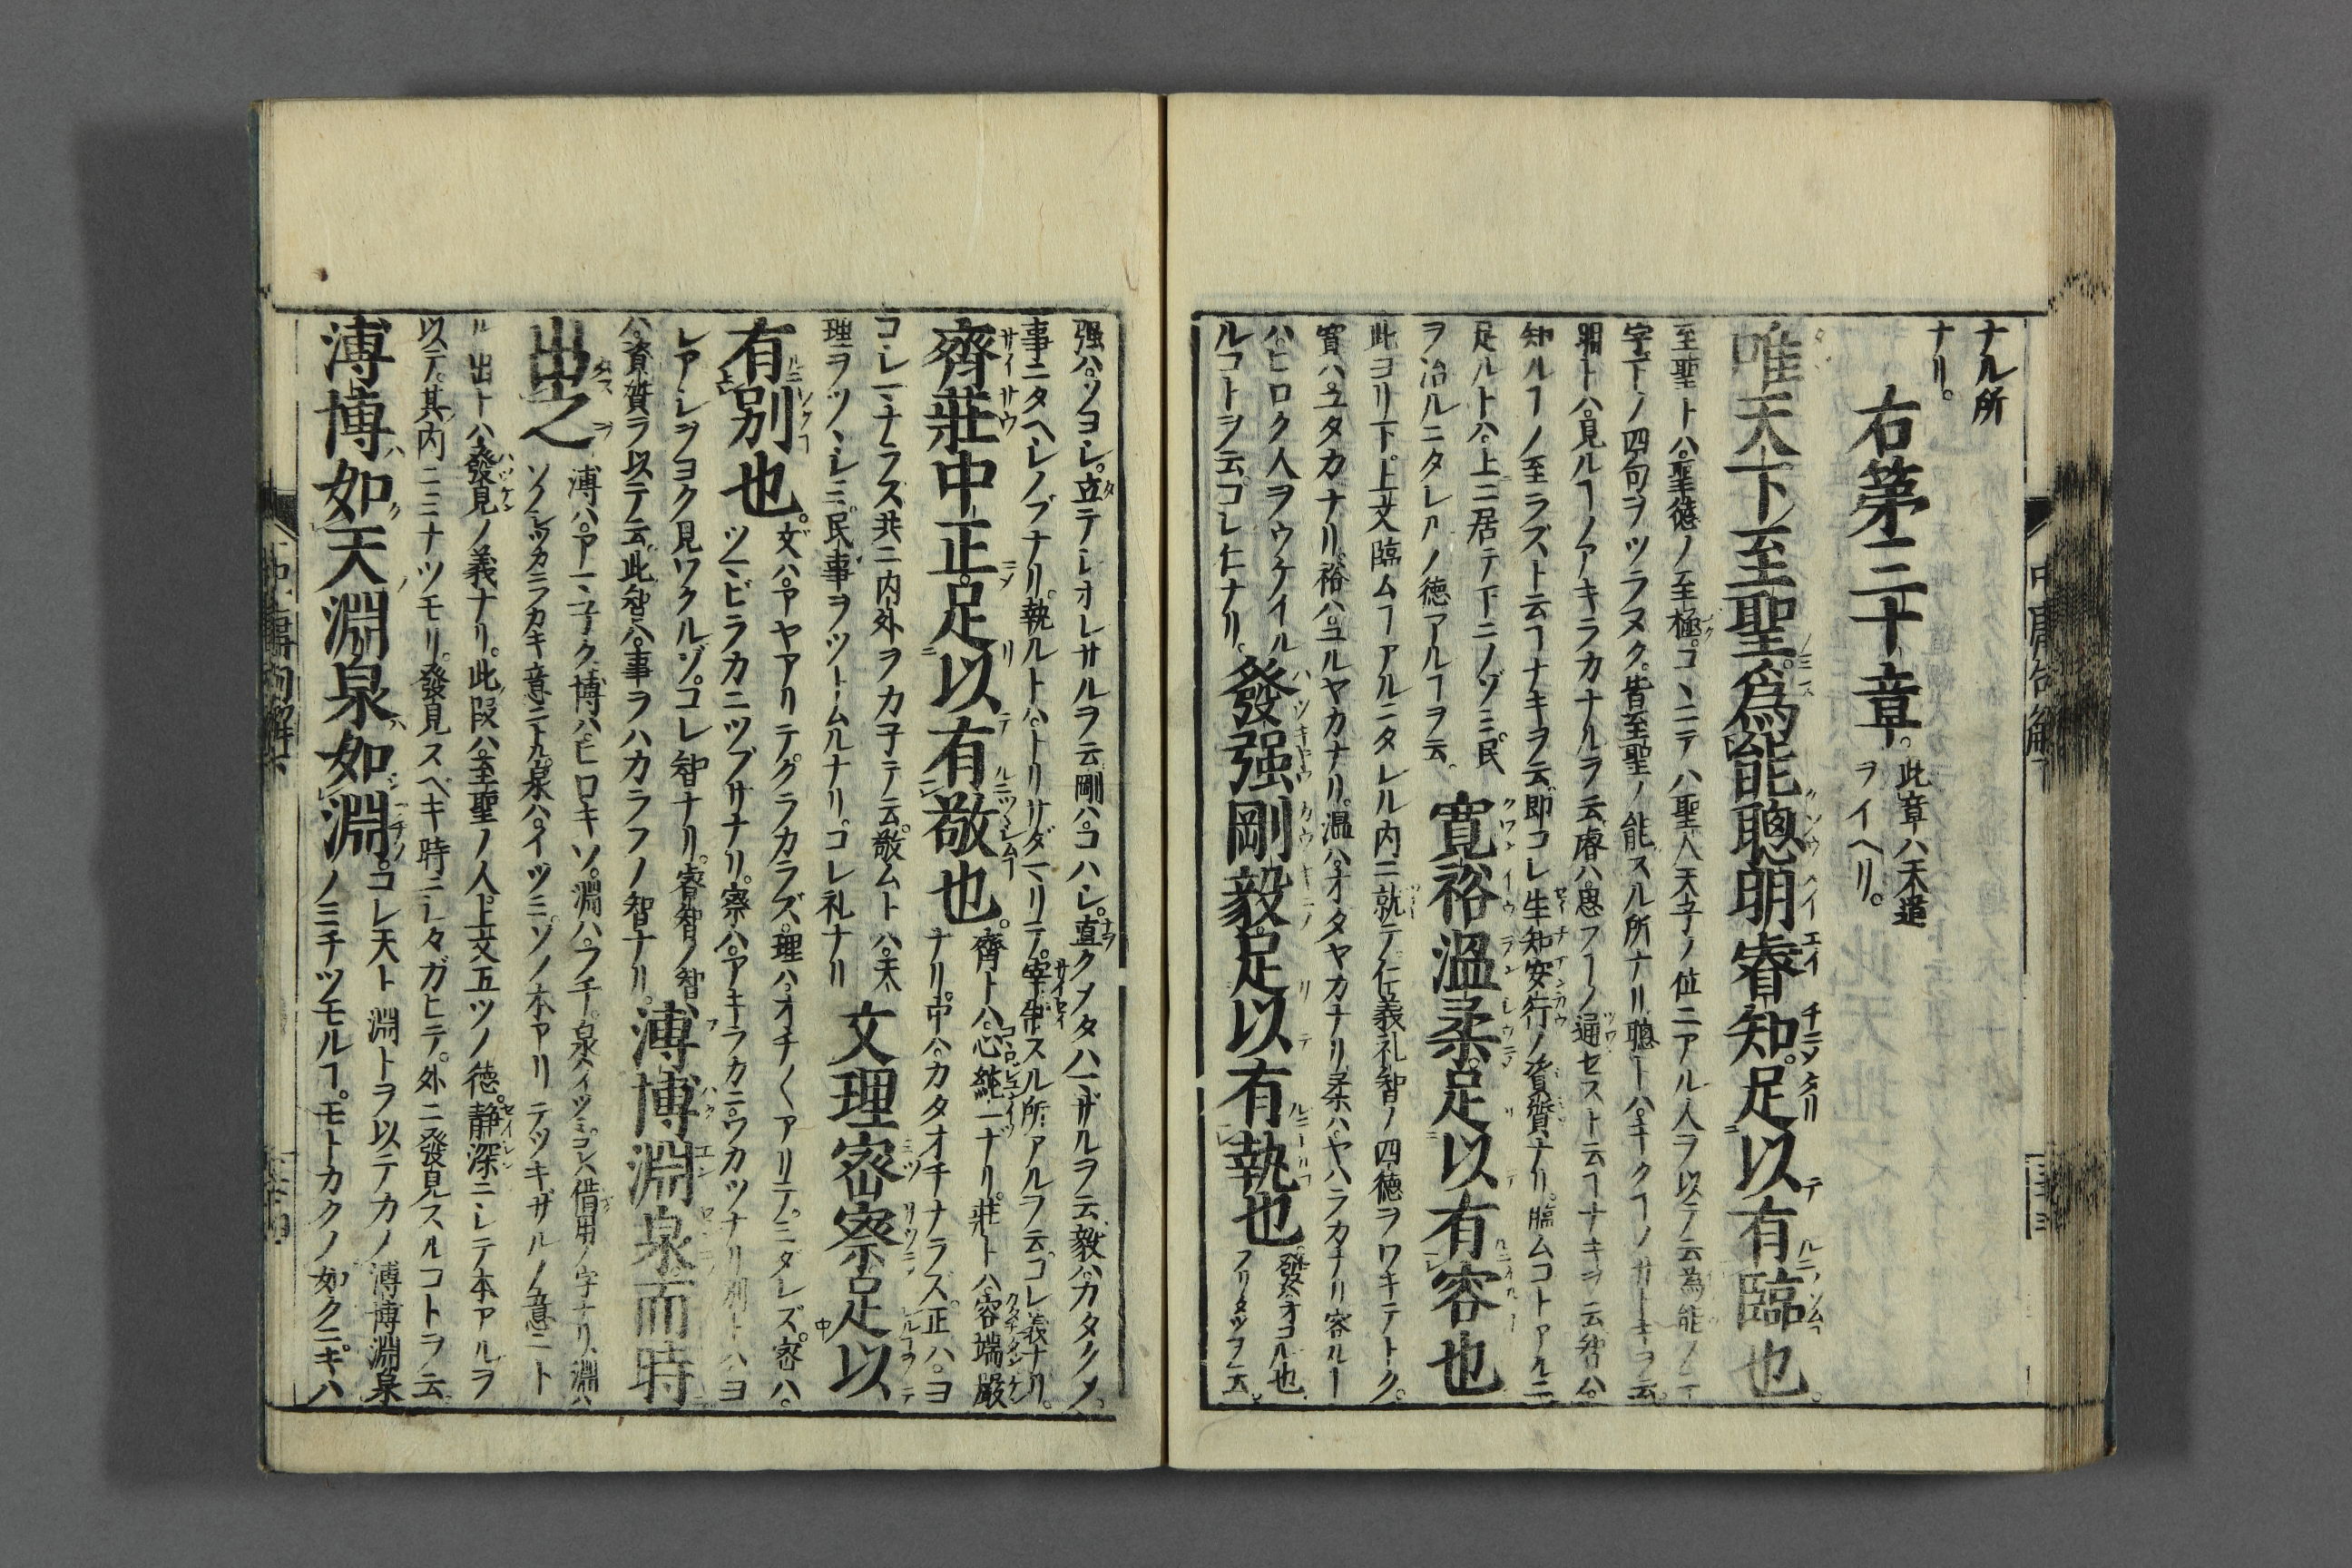 ナル所
ナリ。
右第三十章。此章ハ天道
ヲイヘリ。
唯天下至聖爲能聰明睿知足以有臨也。
至聖トハ聖德ノ至極。コヽニテハ聖人天子ノ位ニアル人ヲ以テ云為能ノ二
字下ノ四句ヲツラヌク。皆至聖ノ能スル所ナリ聰トハキクヿノサトキヲ云。
明トハ見ルヿノアキラカナルヲ云睿ハ思フヿノ通セスト云ヿナキヲ云智ハ
知ルヿノ至ラズト云ヿナキヲ云即コレ生知安行ノ資質ナリ。臨ムコトアルニ
足ルトハ上ニ居テ下ニノゾミ民
ヲ治ルニタレルノ徳アルヿヲ云。
寛裕溫柔足以有容也
此ヨリ下上文臨ムヿアルニタレル内ニ就テ仁義礼智ノ四徳ヲワキテトク。
寛ハユタカナリ裕ハユルヤカナリ。温ハオダヤカナリ柔ハヤハラカナリ容ルヽ
ハヒロク人ヲウケイル
ルコトヲ云コレ仁ナリ。
發强剛毅足以有執也
發ハオコル也
フリタツヲ云。
强ハツヨシ。立テシオレサルヲ云剛ハコハシ。直クメタハマザルヲ云毅ハカタクメ。
事ニタヘシノブナリ。執ルトハトリサダマリテ。宰制スル所アルヲ云コレ義ナリ。
齊莊中正足以有敬也。
齊トハ心純一ナリ。莊トハ容端嚴
ナリ。中ハカタオチナラス正ハヨ
コシマナラス共ニ内外ヲカ子テ云敬ムトハ天
理ヲツヽシミ民事ヲツトムルナリ。コレ礼ナリ
文理密察足以
有別也。
文ハアヤアリテグラカラズ。理ハオチ〳〵アリテ。ミダレズ。密ハ。
ツマビラカニツブサナリ。察ハアキラカニワカツナリ別トハヨ
シアシヲヨク見ワクルゾ。コレ智ナリ。睿智ノ智
ハ資質ヲ以テ云此智ハ事ヲハカラフノ智ナリ。
溥博淵泉而時
出之
溥ハアマ子ク博ハヒロキソ。淵ハフチ。泉ハイツミ。コレハ借用ノ字ナリ淵ハ
ソノシツカラカキ意ニトル泉ハイツミゾノ本アリテツキザルノ意ニト
ル出トハ發見ノ義ナリ。此段ハ至聖ノ人上文五ツノ徳。静深ニシテ本アルヲ
以テ。其内ニミナツモリ。發見スベキ時ニシタガヒテ。外ニ發見スルコトヲ云
溥博如天淵泉如淵。
コレ天ト淵トヲ以テカノ溥博淵泉
ノミチツモルヿ。モトカクノ如クニキハ